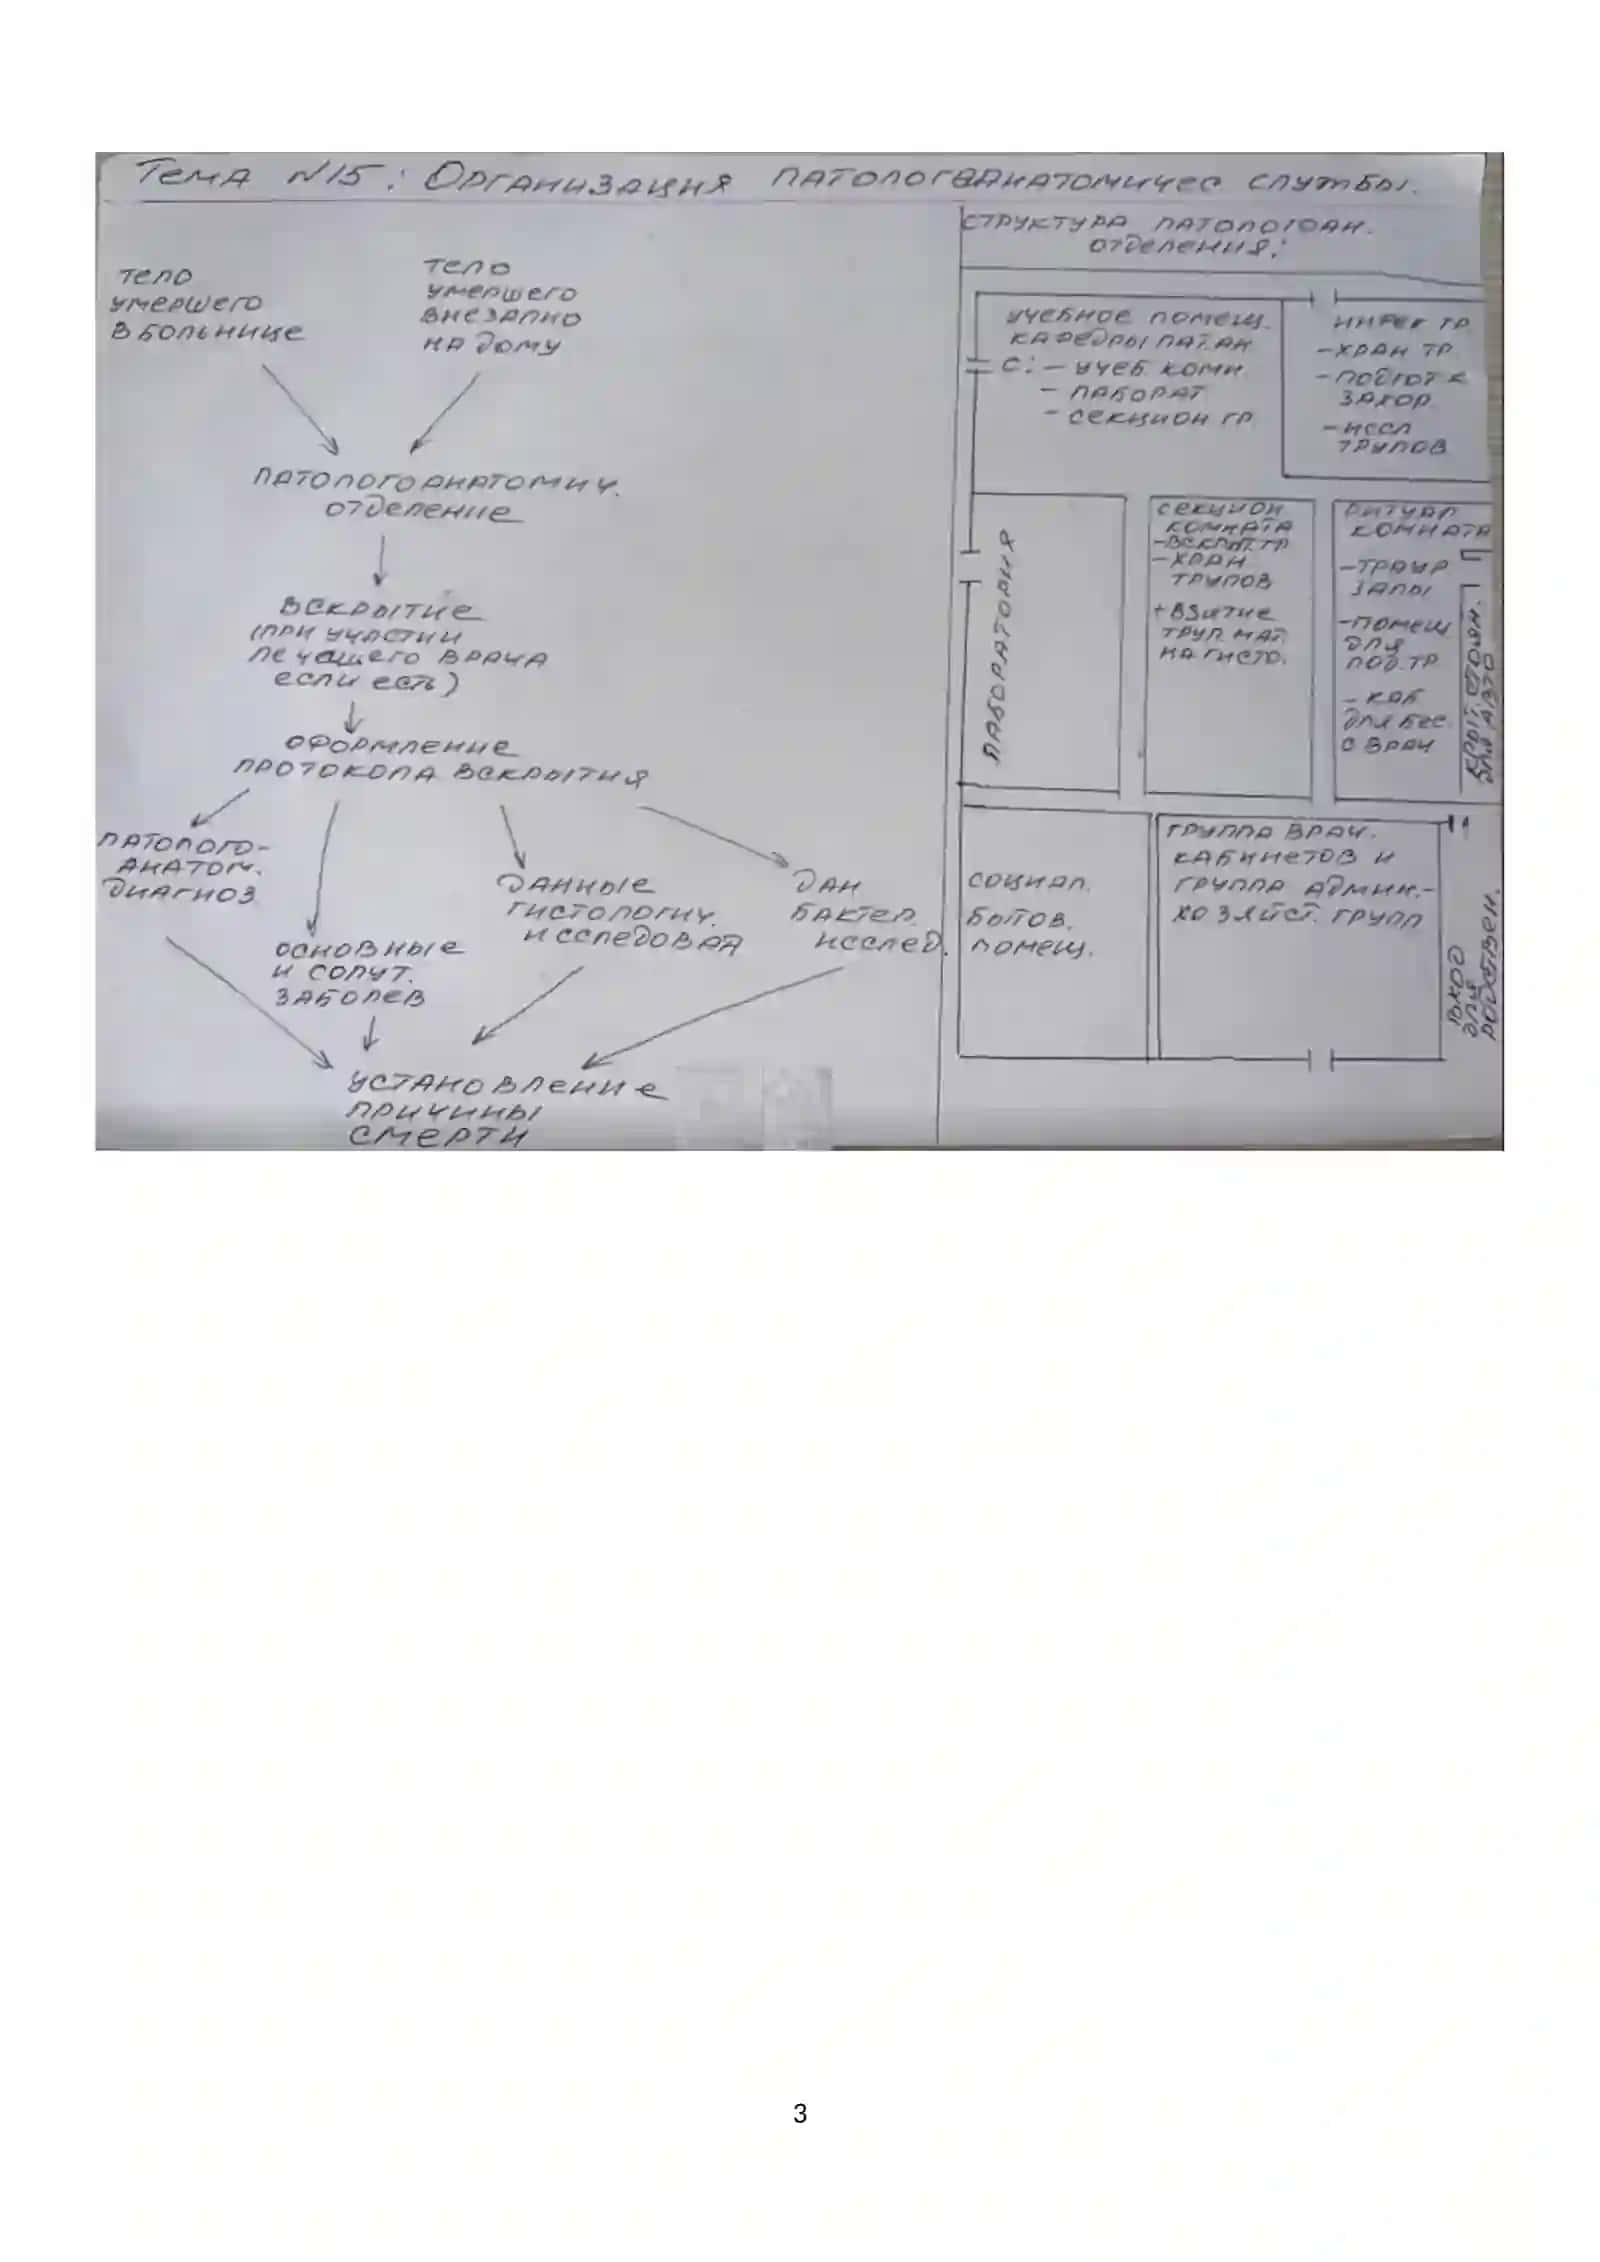 Тема №15: Организация патологоанатомичес службы.
тело
умершего
в больнице
тело
умершего
внезапно
на дому
патологоанатомич.
отделение
вскрытие
(при участии
лечащего врача
если есть)
оформление
протокола вскрытия
патолого-
анатом.
диагноз
основные
и сопут.
заболев
данные
гистологич.
исследован
дан
бактер.
исслед.
установление
причины
смерти
структура патологоан.
отделения:
учебное помещ.
кафедры пат.ан
с: - учеб. комн.
- лаборат
- секцион гр.
инфек тр.
- хран тр.
- подгот к
захор.
- иссл
трупов
лаборатория
секцион
комната
- вскрыт. тр
- хран
трупов
+ взятие
труп. мат.
на гисто.
ритуал
комната
- траур
залы
- помещ
для
под. тр.
- каб
для бес.
с врач
крыт. стоян.
для авто
социал.
бытов.
помещ.
группа врач.
кабинетов и
группа админ.-
хозяйст. групп
вход
для
родствен.
3